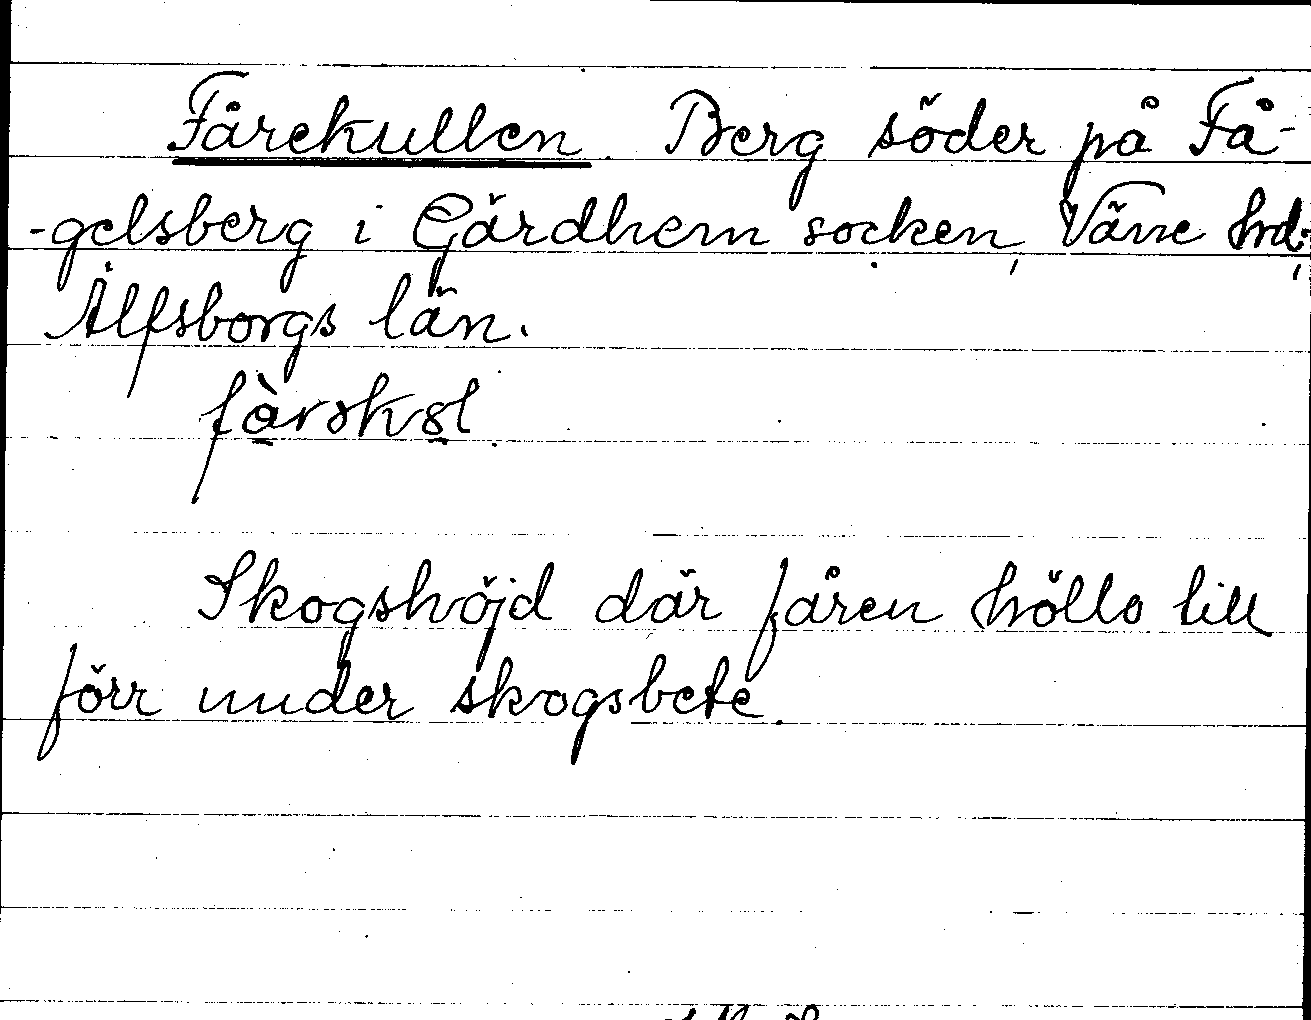 Fårekullen. Berg söder på Få-
-gelsberg i Gärdhem socken, Väne hd.,
Älfsborgs län.
Skogshöjd där fåren höllo till
förr under skogsbete.